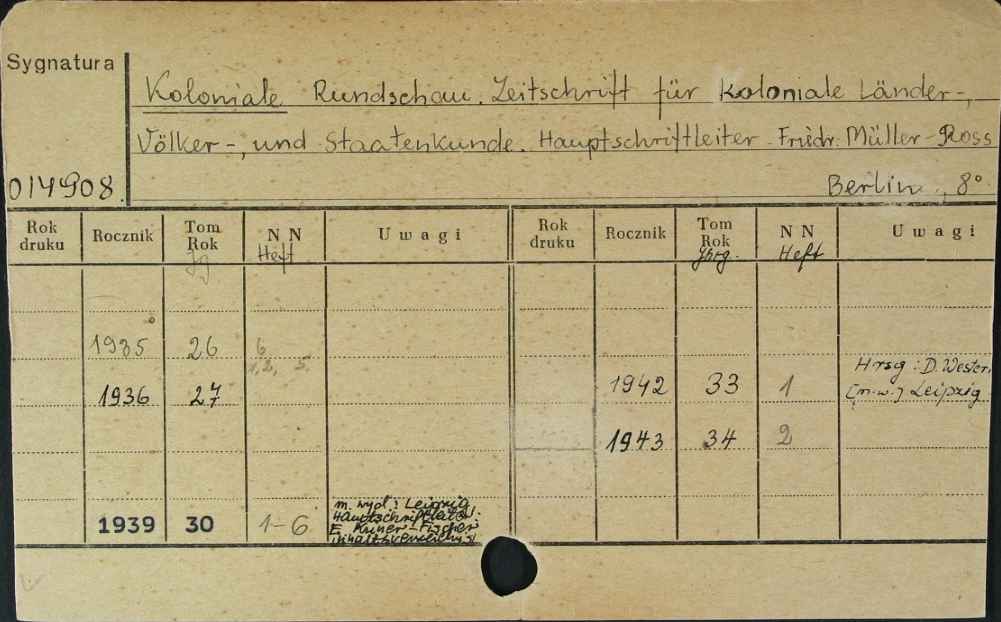 Sygnatura
Koloniale Rundschau. Zeitschrift für koloniale Länder-,
Völker-, und Staatenkunde. Hauptschriftleiter Friedr. Müller-Ross
014908.
Berlin., 8°
Rok druku Rocznik Tom Rok Jg NN Heft Uwagi Rok druku Rocznik Tom Rok Jhrg. NN Heft Uwagi
1935 26 6
1,2, 5.
1936 27
1942 33 1 Hrsg: D. Wester.
[m.w.] Leipzig
1943 34 2
1939 30 1-6 m. wyd.: Leipzig
Hauptschriftleiter.
E. -Fischer
Inhaltsverzeichnis